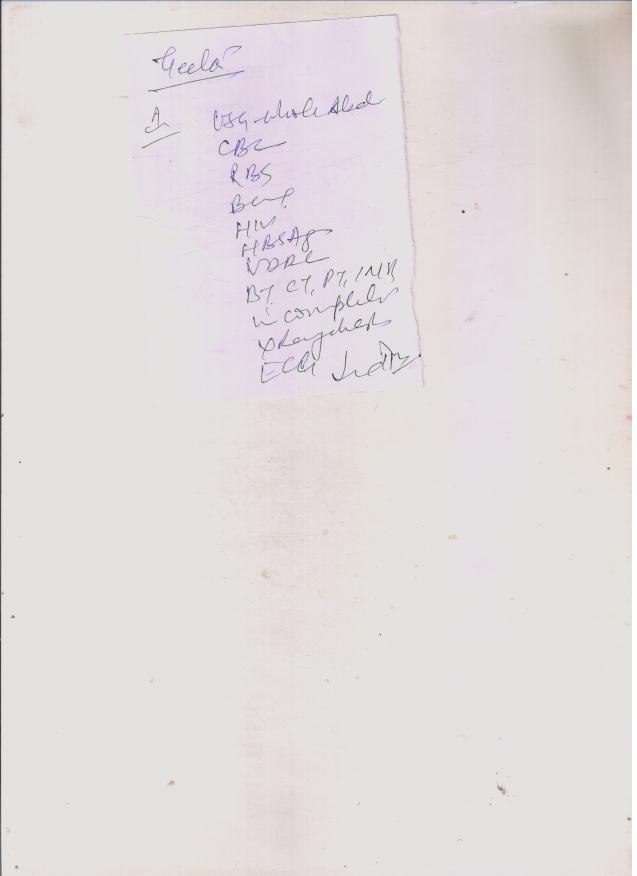 Geeta
USG-whole Abd
CBC
RBS
HIV
HBSAg
VDRL
BT, CT, PT, INR
complete
X Ray chest
ECG